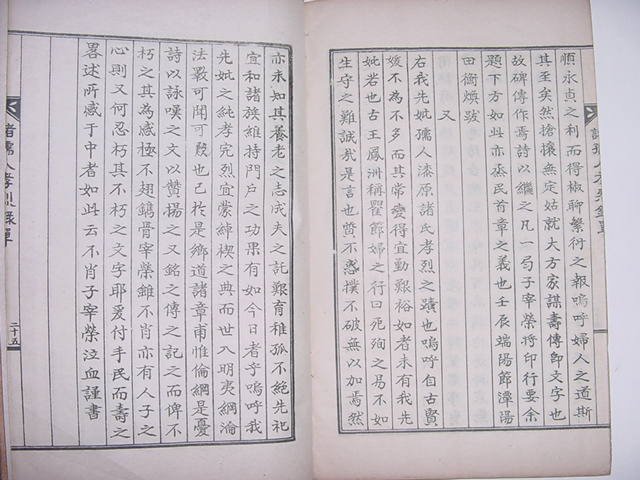 順永貞之利而得椒聊繁衍之報嗚呼婦人之道斯
其至矣然搶攘無定姑就大方家謀壽傳卽文字也
故碑傳作焉詩以繼之凡一局子宰榮將印行要余
題下方如此亦烝民首章之義也壬辰端陽節潭陽
田衡煥跋
又
右我先妣孺人漆原諸氏孝烈之蹟也嗚呼自古賢
媛不為不多而其常變得宜勤艱裕如者未有我先
妣若也古王鳳洲稱瞿節婦之行曰死殉之易不如
生守之難誠哉是言也贄不惑撲不破無以加焉然
亦未知其養老之志成夫之託艱育稚孤不絕先祀
宜和諸族維持門戶之功果有如今日者乎嗚呼我
先妣之純孝完烈宜蒙綽楔之典而世入明夷綱淪
法斁可聞可歎也已於是鄉道諸章甫惟倫綱是憂
詩以詠嘆之文以贊揚之又銘之傳之記之而俾不
朽之其為感極不翅鐫骨宰榮雖不肖亦有人子之
心則又何忍朽其不朽之文字耶爰付手民而壽之
畧述所感于中者如此云不肖子宰榮泣血謹書
諸孺人孝烈錄單
二十五